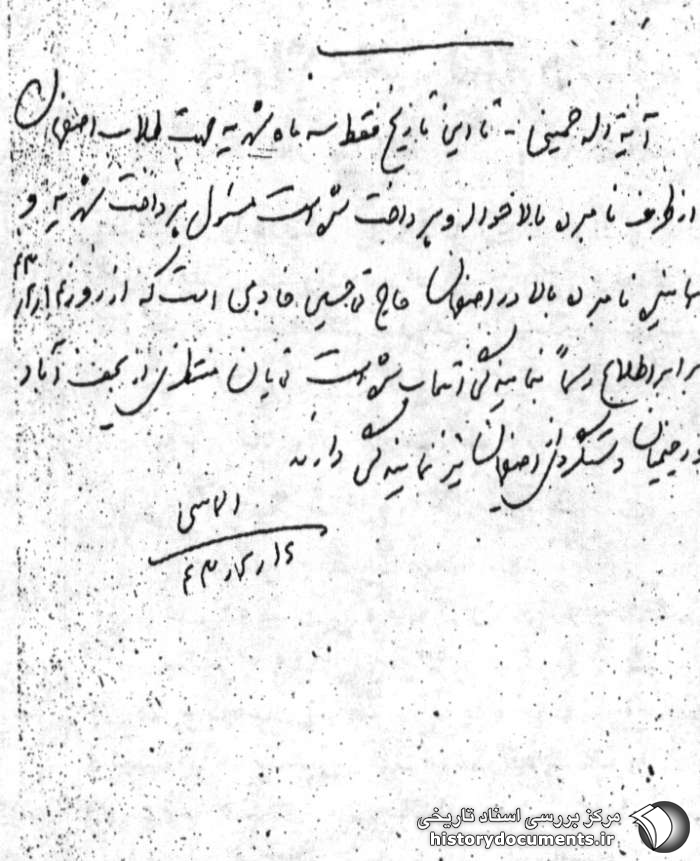 آیة اله خمینی - تا این تاریخ فقط سه ماه شهریه جهت طلاب اصفهان
از طرف نامبرده بالا حواله و پرداخت شده است مسئول پرداخت شهریه و
نماینده نامبرده بالا در اصفهان حاج آقا حسین خادمی است که از روز
برابر اطلاع رسماً بنمایندگی انتخاب شده است آقایان منتظری از نجف آباد
و رحیمیان دستگردی از اصفهان نیز نمایندگی دارند
الماسی
۱۶ر۲ر۴۳
مرکز بررسی اسناد تاریخی
historydocuments.ir